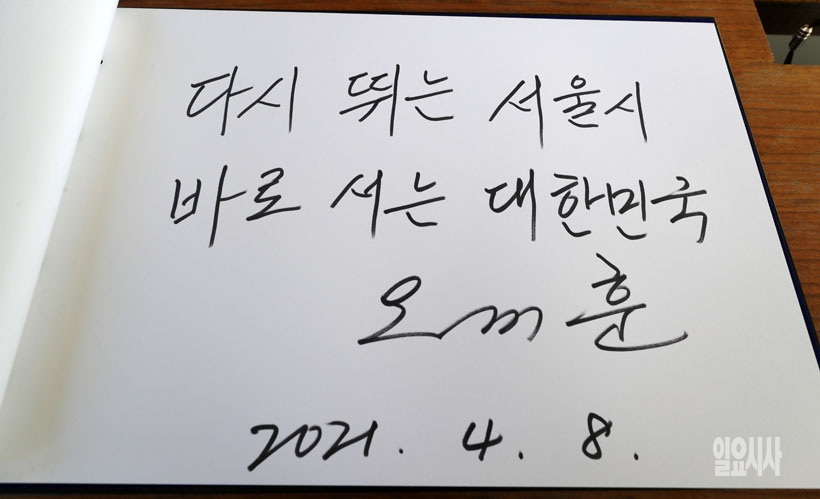 다시 뛰는 서울시
바로 서는 대한민국
오세훈
2021. 4. 8.
일요시사